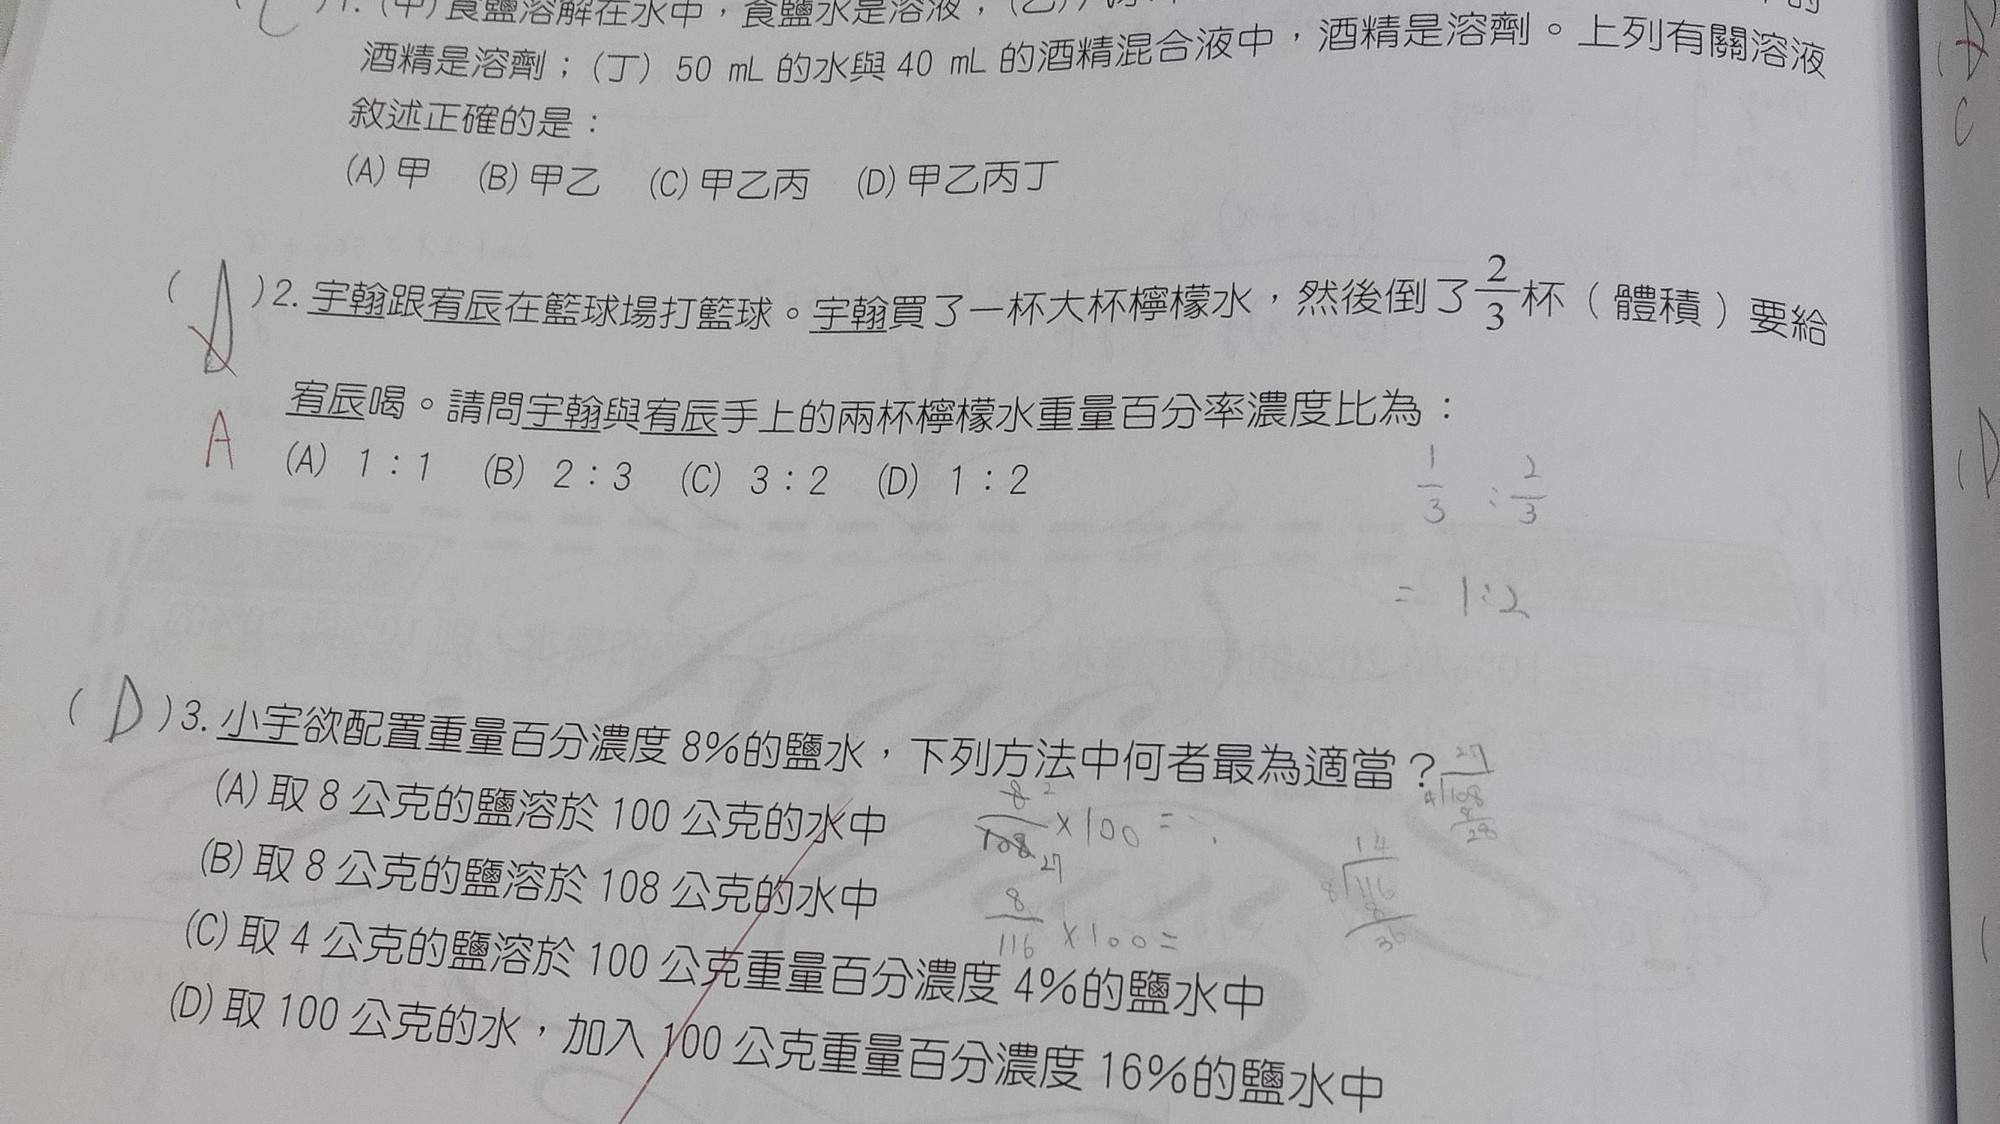 ( C )1. (甲)食鹽溶解在水中，食鹽水是溶液；(乙)
酒精是溶劑；(丁) 50 mL 的水與 40 mL 的酒精混合液中，酒精是溶劑。上列有關溶液
敘述正確的是：
(A) 甲 (B) 甲乙 (C) 甲乙丙 (D) 甲乙丙丁
( D )2. 宇翰跟宥辰在籃球場打籃球。宇翰買了一杯大杯檸檬水，然後倒了 2/3 杯（體積）要給
A
宥辰喝。請問宇翰與宥辰手上的兩杯檸檬水重量百分率濃度比為：
(A) 1：1 (B) 2：3 (C) 3：2 (D) 1：2
1/3 : 2/3
= 1:2
( D )3. 小宇欲配置重量百分濃度 8%的鹽水，下列方法中何者最為適當？
(A) 取 8 公克的鹽溶於 100 公克的水中
8/108 × 100 =
2
27
27
4 108
8
28
(B) 取 8 公克的鹽溶於 108 公克的水中
8/116 × 100 =
14
8 116
8
36
(C) 取 4 公克的鹽溶於 100 公克重量百分濃度 4%的鹽水中
(D) 取 100 公克的水，加入 100 公克重量百分濃度 16%的鹽水中
D
C
D